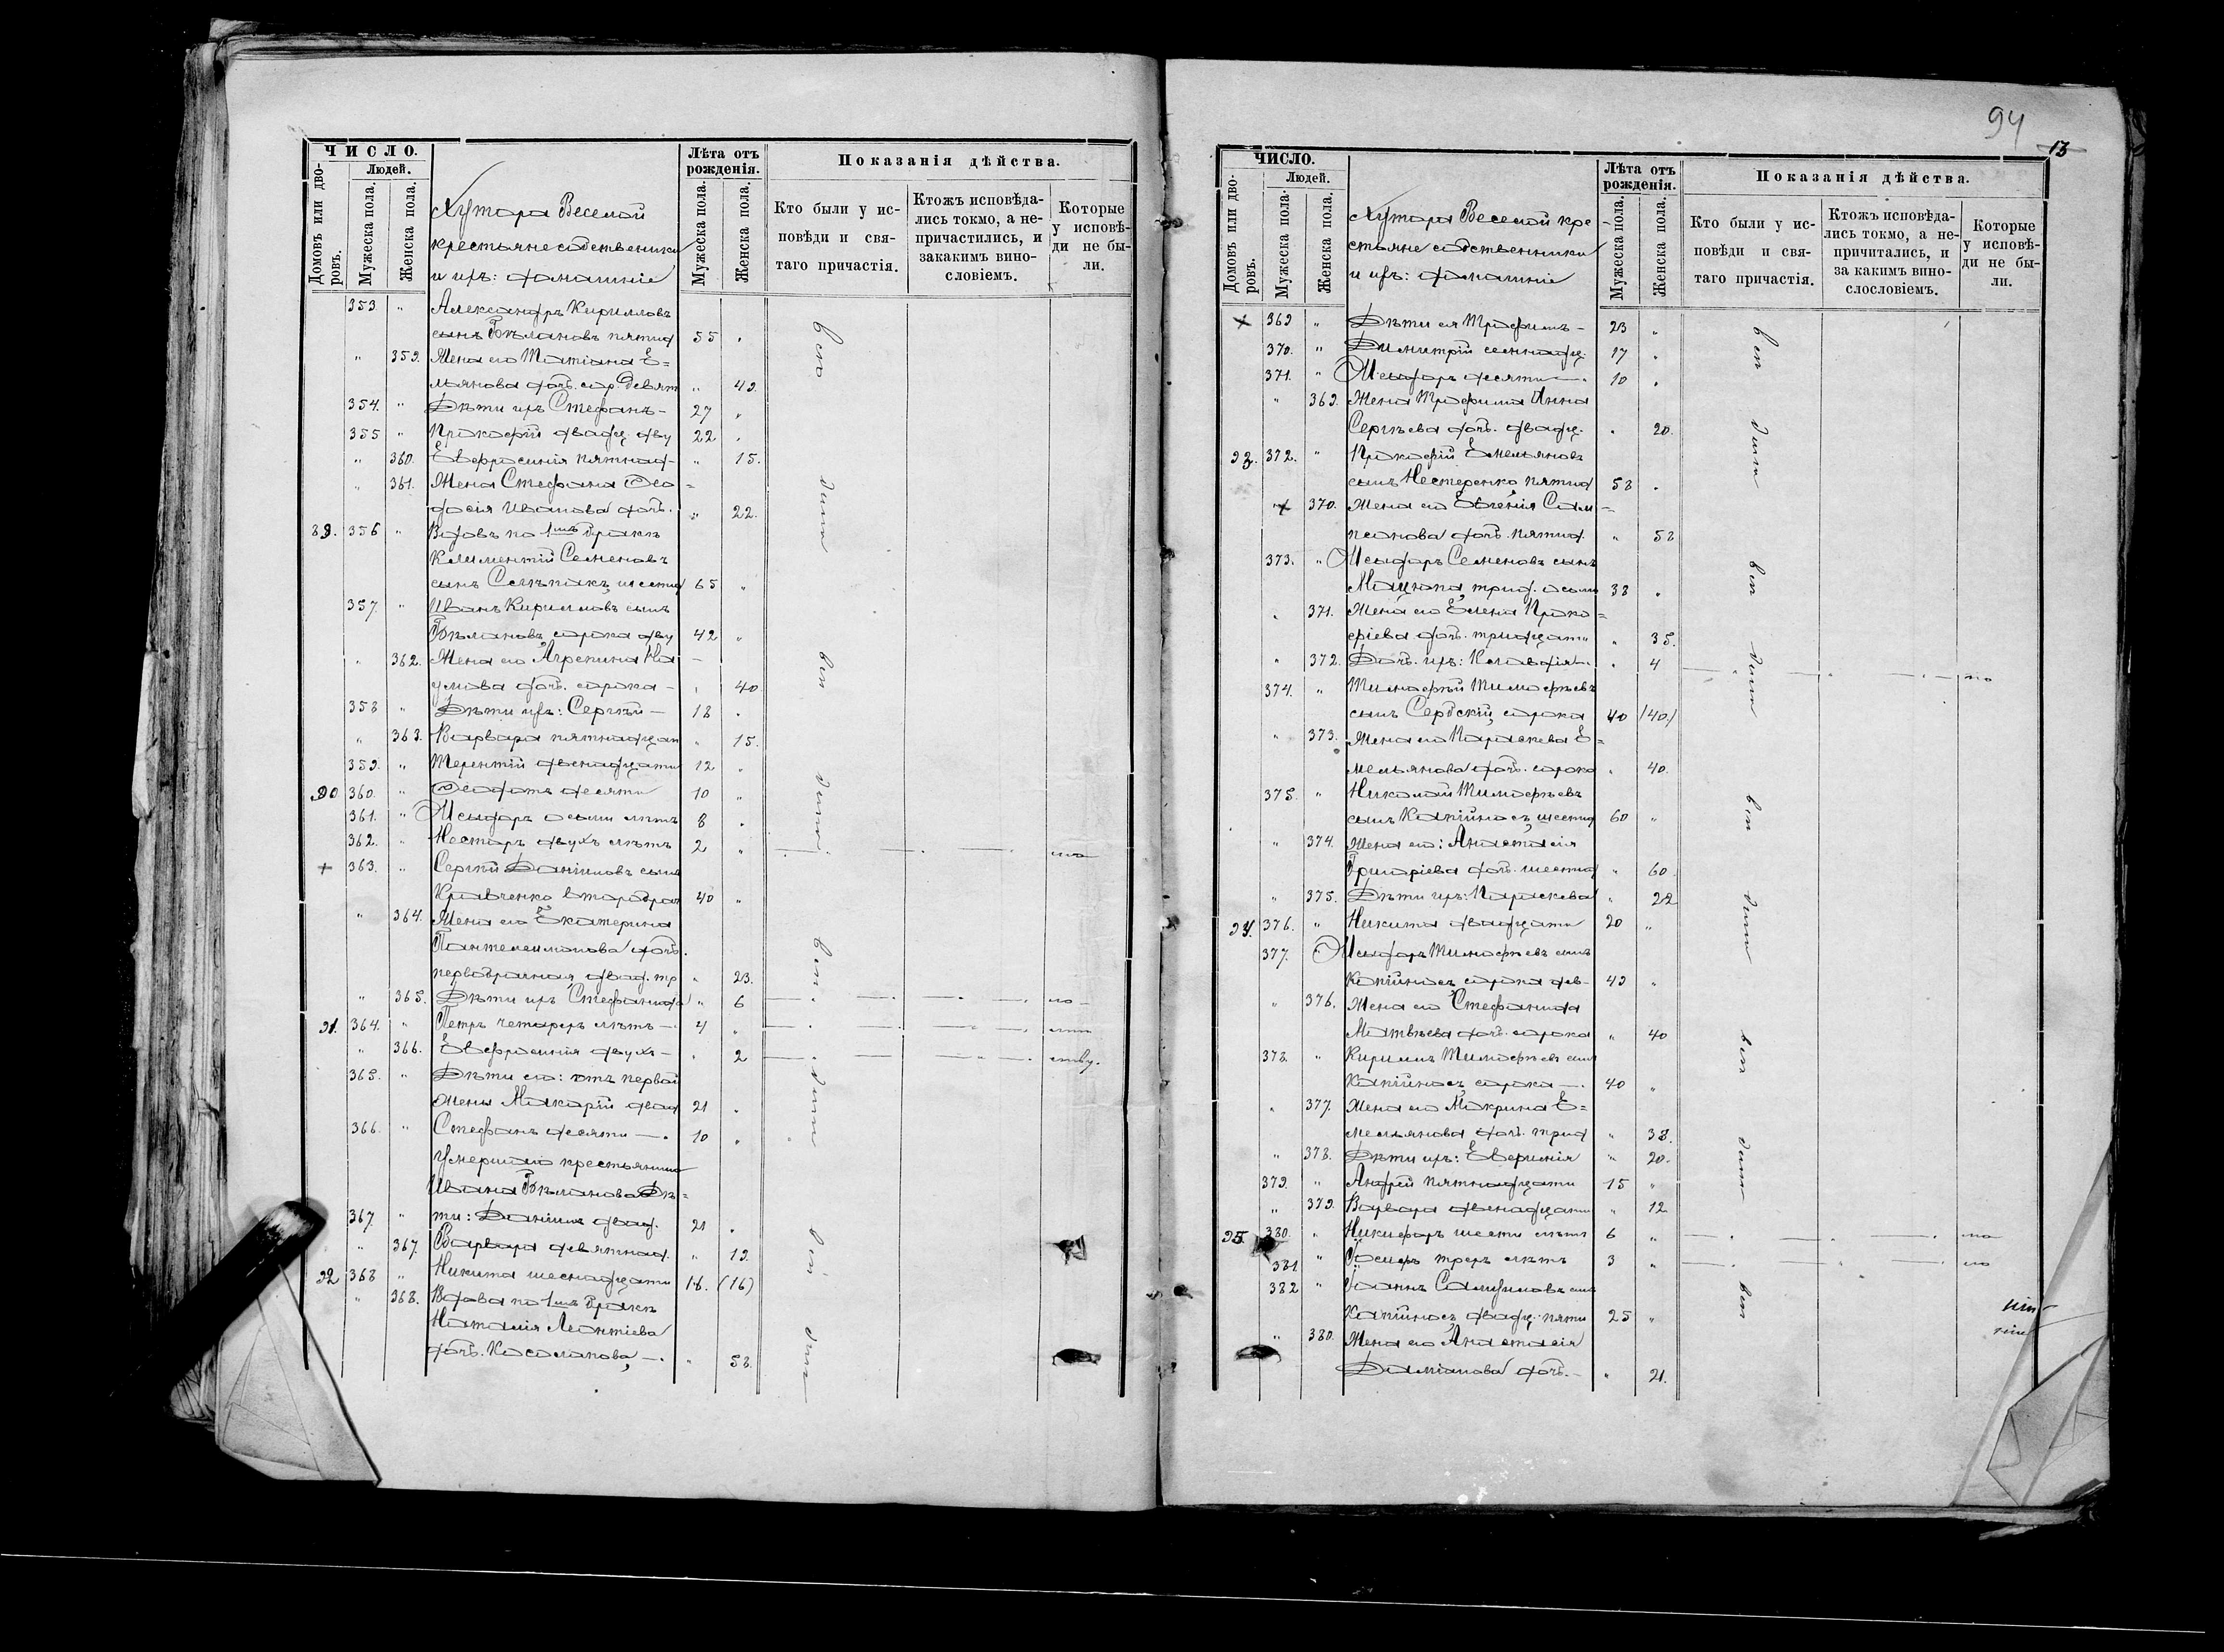 ЧИСЛО.
Людей.
Домовъ или дворовъ.
Мужеска пола.
Женска пола.
Хутора Веселой
крестьяне собственники
и ихъ: домашніе
Лѣта отъ рожденія.
Мужеска пола.
Женска пола.
Показанія дѣйства.
Кто были у исповѣди и святаго причастія.
Ктожъ исповѣдались токмо, а непричастились, и закакимъ винословіемъ.
Которые у исповѣди не были.
353 " Александръ Кирилловъ
сынъ пятид 55 "
" 359. Жена его Татіана Е=
мьянова доч. сор. девят " 49.
354. " Дѣти ихъ Стефанъ - 27 "
355 " Прокофій двадц дву 22 "
" 360. Евфросинія пятнад- " 15.
" 361. Жена Стефана Ѳео=
досія Иванова доч. " 22.
89. 356 " Вдовъ по 1мъ бракѣ
Климентій Семеновъ
сынъ шестид 65 "
357. " Иванъ Кирилловъ сынъ
сорока дву 42 "
" 362. Жена его Агрепина На-
умова доч. сорока - " 40
358 " Дѣти ихъ: Сергѣй - 18 "
" 363. Варвара пятнадцат " 15.
359. " Терентій двенадцати 12 "
90 360. " Ѳеодотъ десяти 10 "
361. " Исидоръ осьми лѣтъ 8 "
362. " Несторъ двухъ лѣтъ 2 "
+ 363. " Сергѣй Даніиловъ сынъ
Кравченко второбрач 40 "
" 364. Жена его Екатерина
Пантелеимонова доч.
первобрачная, двад. тр " 23.
" 365. Дѣти ихъ Стефанида " 6
91. 364. " Петръ четырехъ лѣтъ - 4 "
" 366. Евфросинія двухъ - " 2
365. " Дѣти его: отъ первой
жены Макарій двад 21 "
366. " Стефанъ десяти - 10 "
Умершаго крестьянина
Ивана Дѣ=
367. " ти: Даніилъ двад. 21 "
" 367. Варвара девятнад. " 19.
92 368 " Никита шеснадцати 16. (16)
" 368. Вдова по 1мъ бракѣ
Наталія Леонтіева
доч. Косолапова, - " 58.
94
13
ЧИСЛО.
Людей.
Домовъ или дворовъ.
Мужеска пола.
Женска пола.
Хутора Веселой кре
стьяне собственники
и ихъ: домашніе
Лѣта отъ рожденія.
Мужеска пола.
Женска пола.
Показанія дѣйства.
Кто были у исповѣди и святаго причастія.
Ктожъ исповѣдались токмо, а непричитались, и за какимъ винослословіемъ.
Которые у исповѣди не были.
+ 369 " Дѣти ея Трофимъ - 23 "
370. " Димитрій семнадц. 17 "
371. " Исидоръ десяти 10 "
" 369. Жена Трофима Анна
Сергѣева доч. двадц. " 20.
93. 372. " Прокофій Емельяновъ
сынъ Нестеренко пятид 58 "
+ 370. Жена его Евгенія Сам-
псонова доч. пятид. " 58
373. " Исидоръ Семеновъ сынъ
Мацюпа, трид. осьми 38 "
" 371. Жена его Елена Проко=
фіева доч. тридцати " 35.
" 372. Доч. ихъ: Клавдія " 4
374. " Тимофѣй Тимофѣевъ
сынъ Сербскій, сорока 40 (40)
" 373. Жена его Параскева Е=
мельянова доч. сорока " 40.
375. " Николай Тимофѣевъ
сынъ Капійносъ, шестид 60 "
" 374. Жена его: Анастасія
Григоріева доч. шестид " 60.
" 375. Дѣти ихъ: Параскева " 22
94. 376. " Никита двадцати 20 "
377. " Исидоръ Тимофѣевъ сынъ
Капійносъ сорока дев- 49 "
" 376. Жена его Стефанида
Матвѣева доч. сорока " 40
378. " Кириллъ Тимофѣевъ сынъ
Капійносъ сорока - 40 "
" 377. Жена его Макрина Е=
мельянова доч. трид " 38.
" 378. Дѣти ихъ: " 20.
379. " Андрей пятнадцати 15 "
" 379. Варвара двенадцати " 12
95. 380. " Никифоръ шести лѣтъ 6 "
381 " Іосифъ трехъ лѣтъ 3 "
382 " Іоаннъ сынъ
Капійносъ, двадц. пяти 25 "
" 380. Жена его Анастасія
Даміанова доч. - " 21.